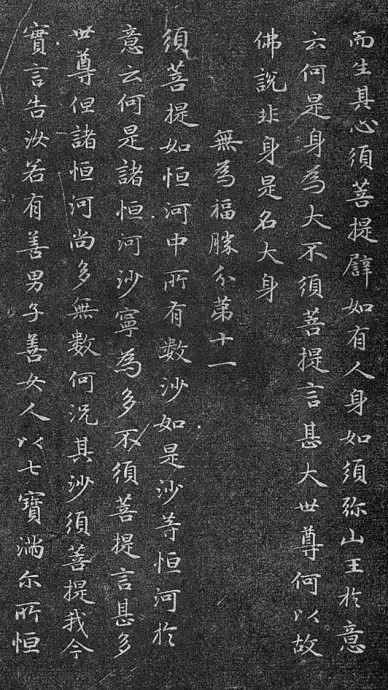 而生其心須菩提譬如有人身如須弥山王於意
云何是身為大不須菩提言甚大世尊何以故
佛說非身是名大身
無為福勝分第十一
須菩提如恒河中所有數沙如是沙等恒河於
意云何是諸恒河沙寧為多不須菩提言甚多
世尊但諸恒河尚多無數何況其沙須菩提我今
實言告汝若有善男子善女人以七寶滿尔所恒